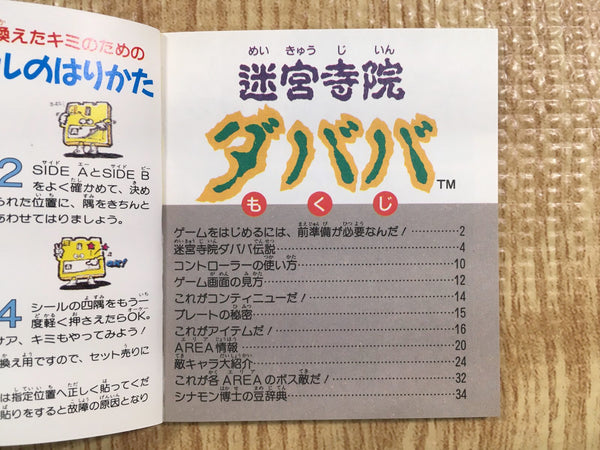 換えたキミのための
ルのはりかた
2 SIDE AとSIDE B
をよく確かめて、決め
られた位置に、隅をきちんと
あわせてはりましょう。
OK!
4 シールの四隅をもう一
度軽く押さえたらOK。
サア、キミもやってみよう!
換え用ですので、セット売りに
は指定位置へ正しく貼ってくだ
貼りをすると故障の原因となり
めいきゅうじいん
迷宮寺院
ダババ TM
もくじ
ゲームをはじめるには、前準備が必要なんだ! 2
迷宮寺院ダババ伝説 4
コントローラーの使い方 10
ゲーム画面の見方 12
これがコンティニューだ! 14
プレートの秘密 15
これがアイテムだ! 16
AREA情報 20
敵キャラ大紹介 24
これが各AREAのボス敵だ! 32
シナモン博士の豆辞典 34